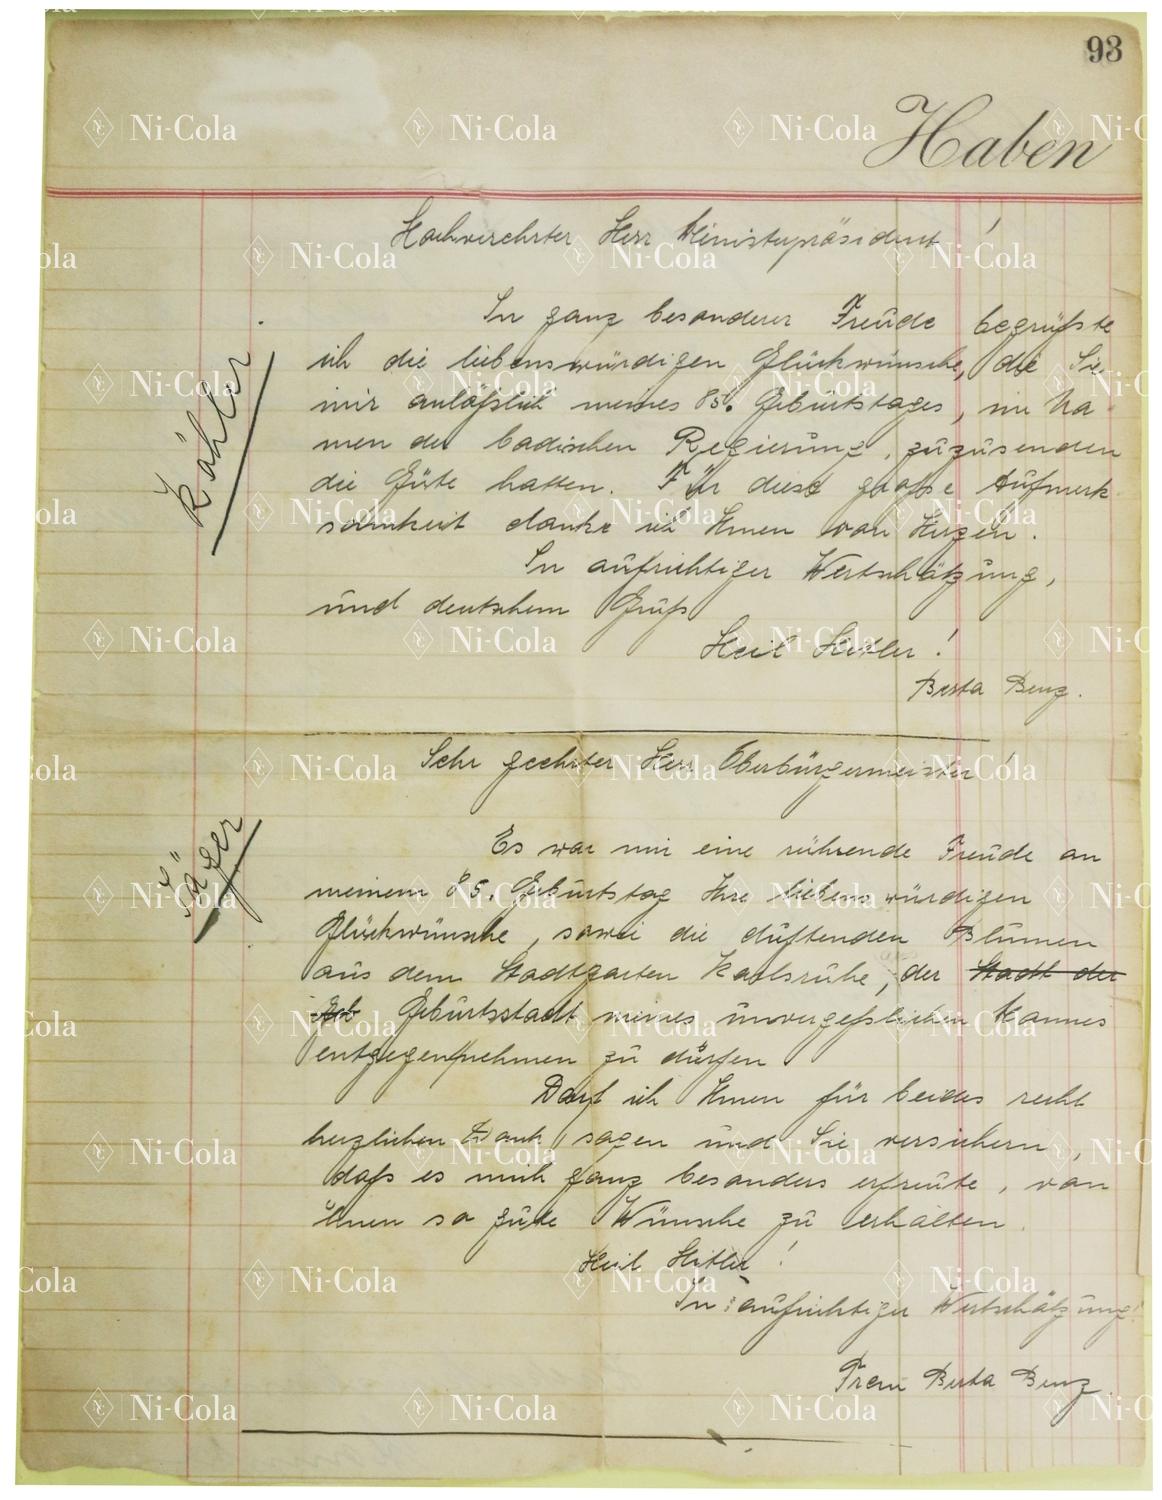 93
Haben
Hochverehrter Herr Ministerpräsident !
In ganz besonderer Freude begrüßte
ich die liebenswürdigen Glückwünsche, die Sie
mir anläßlich meines 85. Geburtstages, im Na-
men der badischen Regierung, zuzusenden
die Güte hatten. Für diese große Aufmerk-
samkeit danke ich Ihnen von Herzen.
In aufrichtiger Wertschätzung,
und deutschem Gruß
Heil Hitler !
Berta Benz.
Köhler
Sehr geehrter Herr Oberbürgermeister !
Es war mir eine rührende Freude an
meinem 85. Geburtstag Ihre liebenswürdigen
Glückwünsche, sowie die duftenden Blumen
aus dem Stadtgarten Karlsruhe, der Stadt der
Geb Geburtsstadt meines unvergeßlichen Mannes
entgegennehmen zu dürfen
Darf ich Ihnen für beides recht
herzlichen Dank sagen und Sie versichern,
daß es mich ganz besonders erfreute, von
Ihnen so gute Wünsche zu erhalten
Heil Hitler !
In aufrichtiger Wertschätzung!
Frau Berta Benz.
Jäger
Ni-Cola